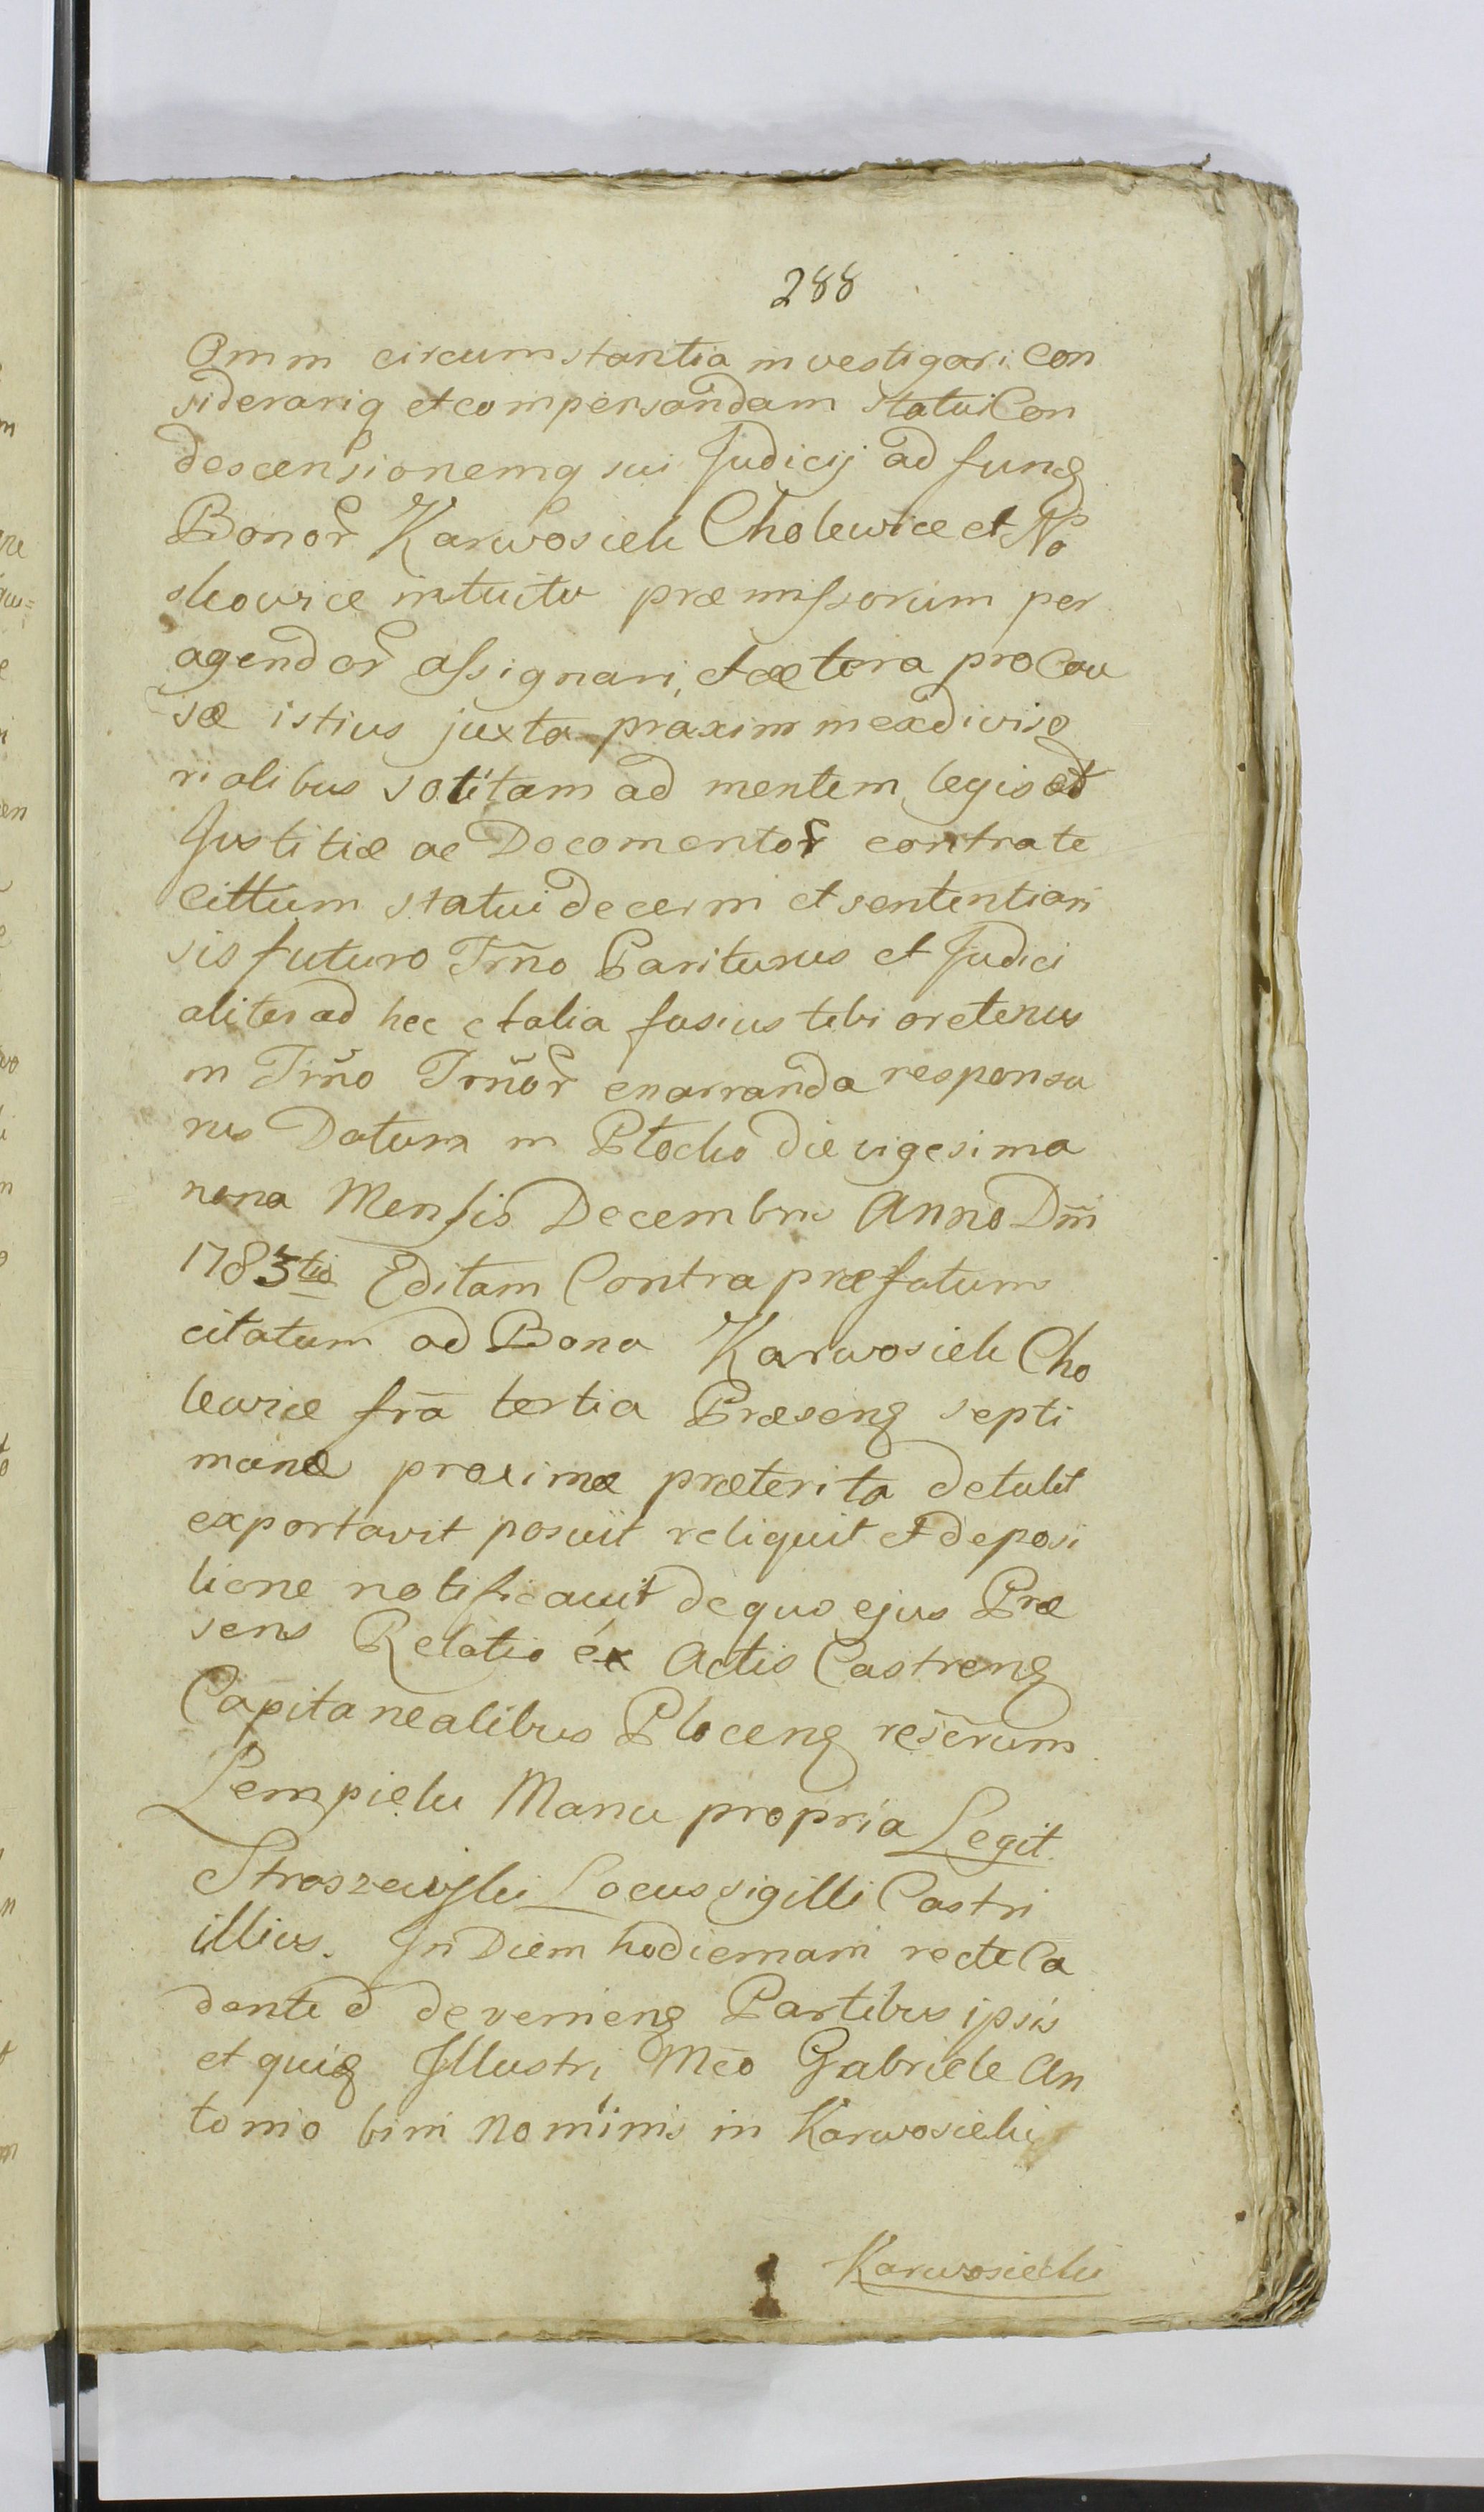 288
Omni circumstantia investigari con
siderariq et compensandam statui Con
descensionemq sui Judicij ad fung
Bonor Karwosieki Cholewice et No
skowice intuitu præmissorum per
agendor assignari, et cætera pro Cau
sæ istius juxta praxim in exdiviso
rialibus solitam ad mentem legis et
Justitiæ ac Documentor contra te
Cittum statui decerni et sententiari
sis futuro Trño Pariturus et Judici
aliter ad hec et alia fusius tibi oretenus
in Trño Trñor enarranda responsu
rus Datum in Płocko die vigesima
nona Mensis Decembris Anno Dñi
1783tio Editam Contra præfatum
citatum ad Bona Karwosieki Cho
lewice fra tertia Præseng septi
manæ proximæ præterita detulit
exportavit posuit reliquit et deposi
tione notificavit de quo ejus Præ
sens Relatio ex Actis Castreng
Capitanealibus Ploceng reserum
Lempicki Manu propria Legit
Straszewski Locus sigilli Castri
illius. In Diem hodiernam recte Ca
dante d devenieng Partibus ipsis
et quiq Illustri Mco Gabriele An
tonio bini Nominis in Karwosieki
Karwosiecki